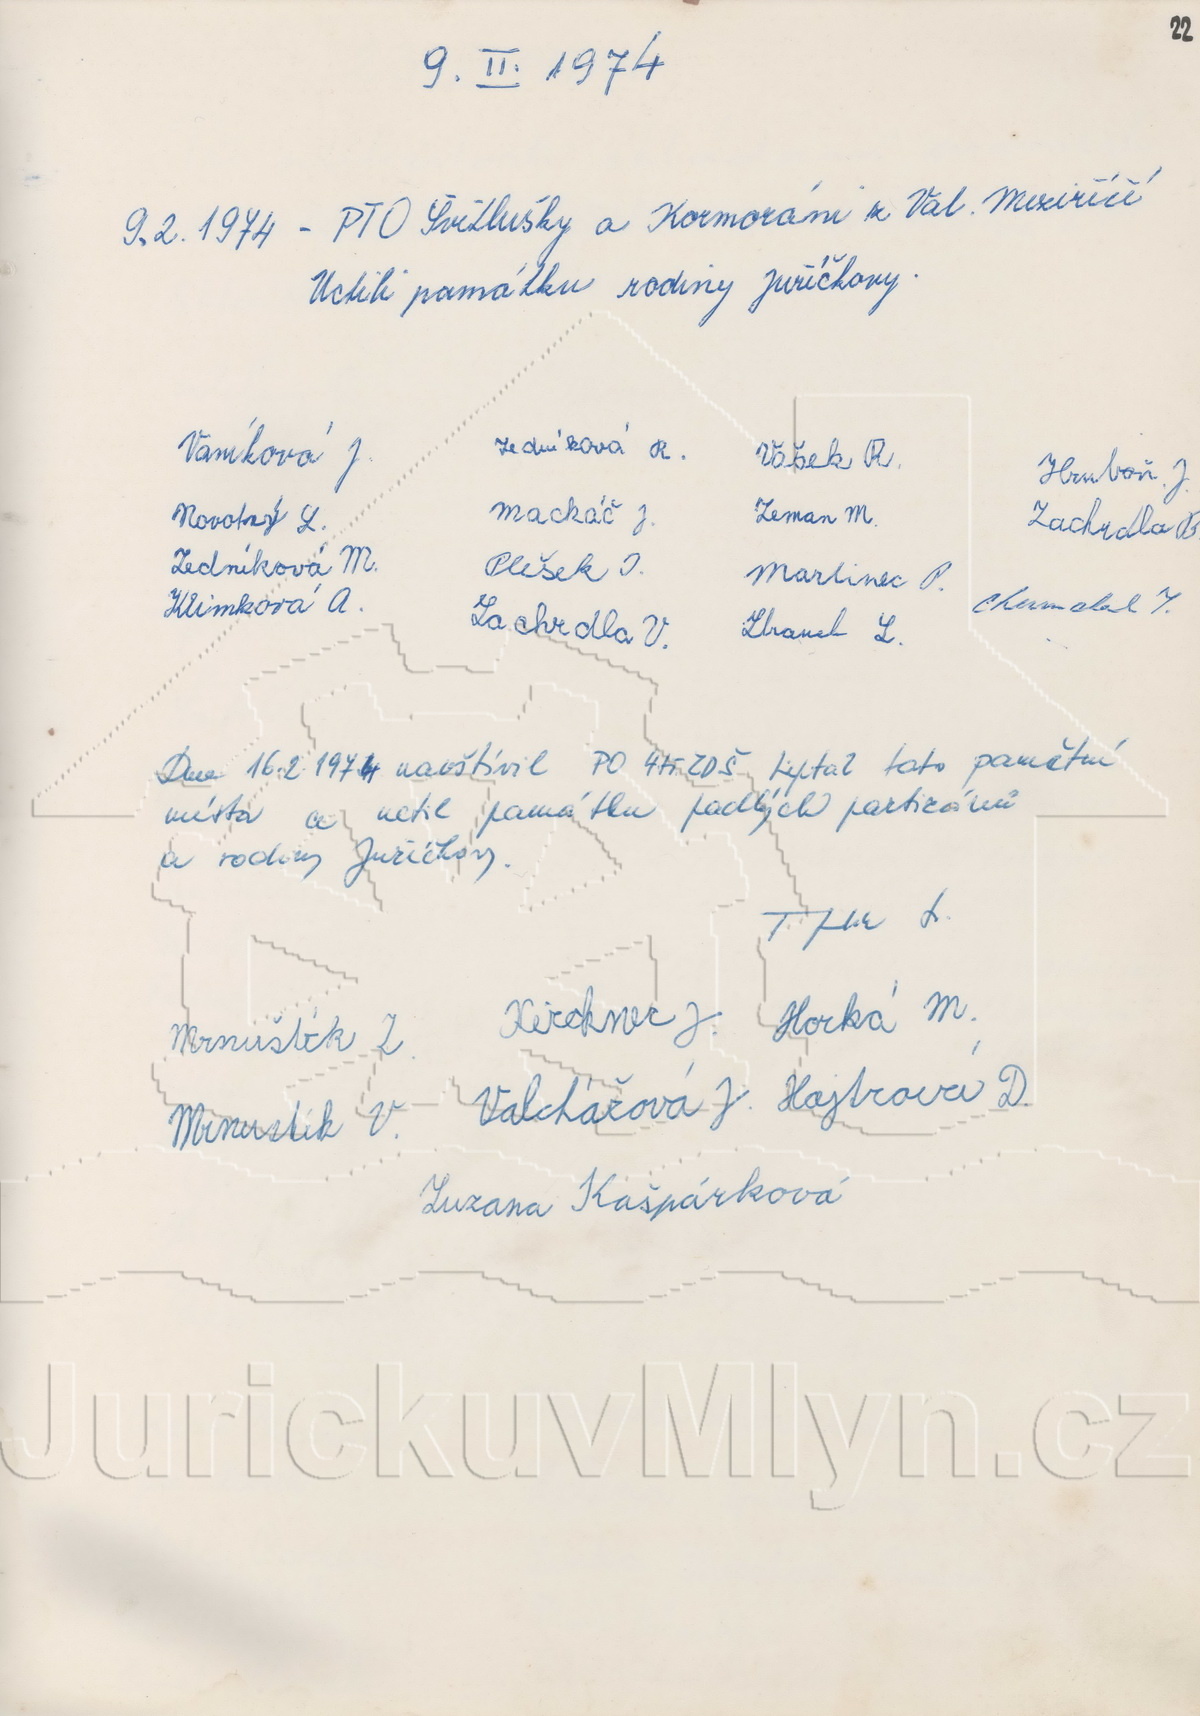 22
9. II. 1974
9.2. 1974 - PTO Světlušky a Kormoráni z Val. Meziříčí
Uctili památku rodiny Juříčkovy.
Vaníková J. Zedníková R. Vašek R. Hruboň J.
Novotný L. Mackáč J. Zeman M. Zachrdla
Zedníková M. Plešek J. Martinec P.
Klimková A. Zachrdla V. L.
Dne 16.2 1974 navštívil PO 4tř. ZDŠ Liptál tato památní
místa a uctil památku padlých partizánů
a rodiny Juříčkovy.
Kirchner J. Horká M.
Mrnuštík Z.
Mrnuštík V. Valchářová J. Hajtrová D.
Zuzana Kašpárková
JurickuvMlyn.cz